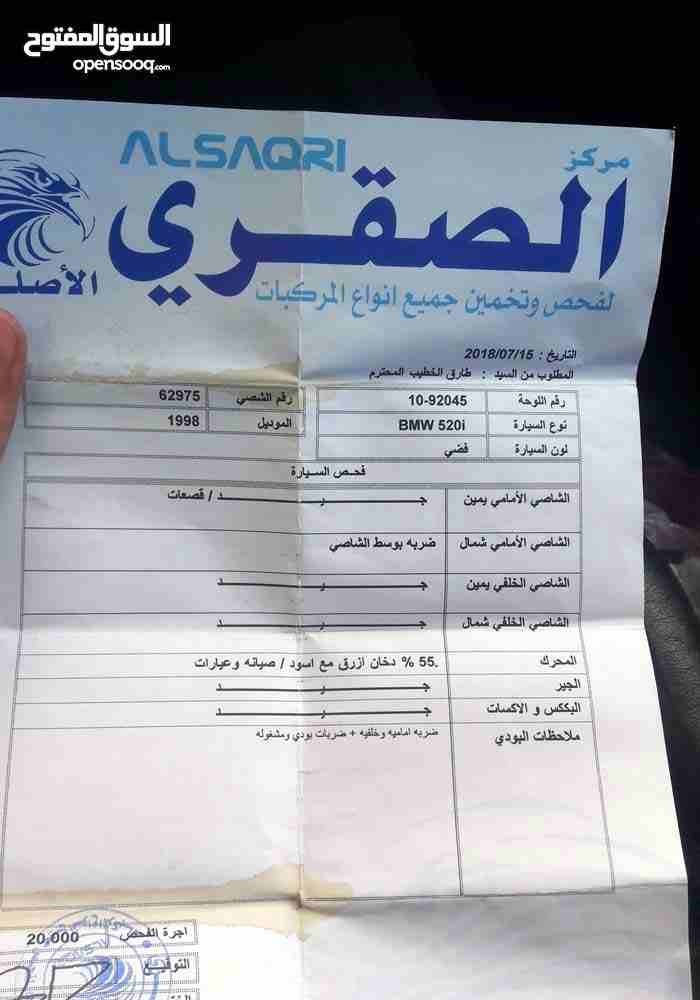 السوق المفتوح
opensooq.com
ALSAQRI
مركز
الصقري
لفحص وتخمين جميع انواع المركبات
التاريخ : 2018/07/15
المطلوب من السيد : طارق الخطيب المحترم
رقم اللوحة 10-92045 رقم الشصي 62975
نوع السيارة BMW 520i الموديل 1998
لون السيارة فضي
فحص السيارة
الشاصي الأمامي يمين جــــرــــد / قصعات
الشاصي الأمامي شمال ضربه بوسط الشاصي
الشاصي الخلفي يمين جــــرــــد
الشاصي الخلفي شمال جــــرــــد
المحرك .55 % دخان ازرق مع اسود / صيانه وعيارات
الجير جــــرــــد
البككس و الاكسات جــــرــــد
ملاحظات البودي ضربه اماميه وخلفيه + ضربات بودي ومشغوله
اجرة الفحص 20,000
التوقيع